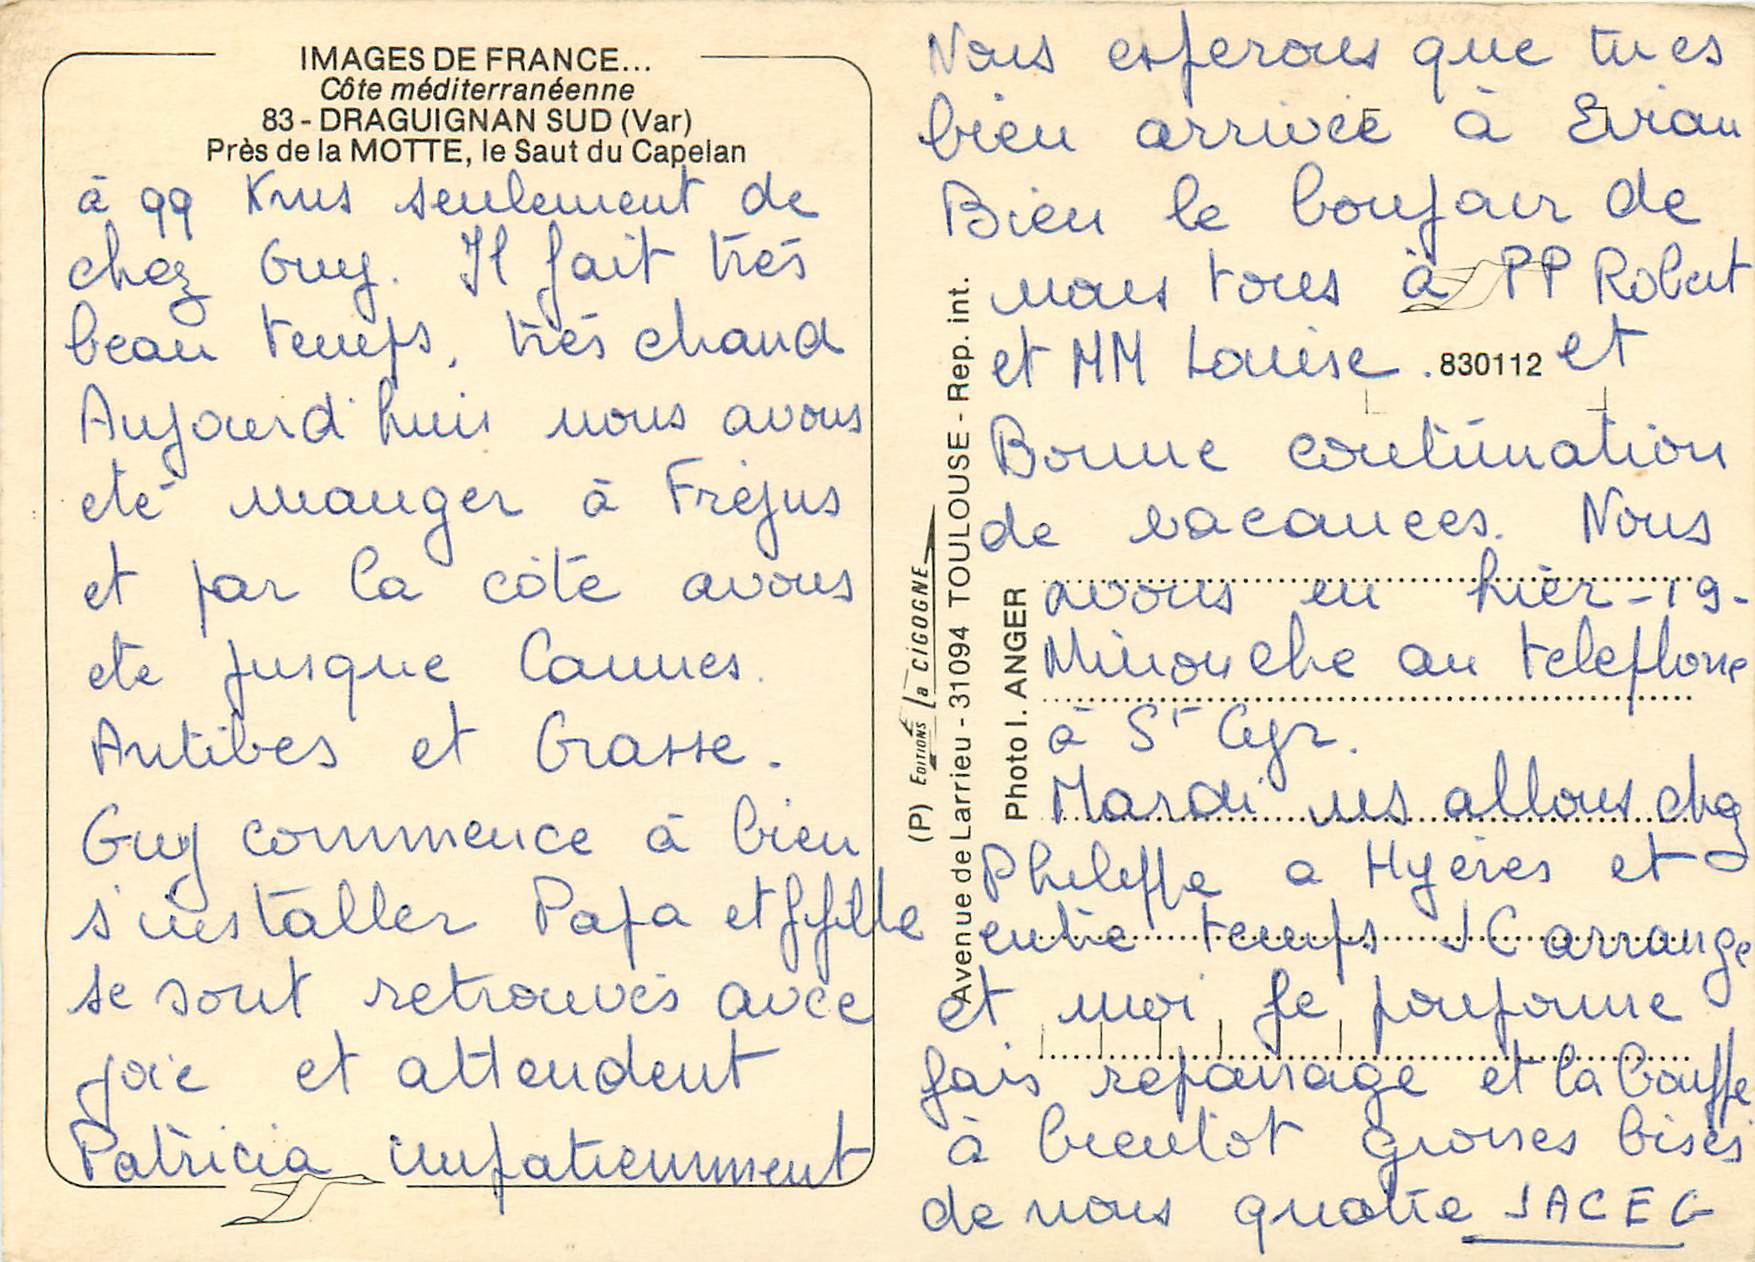 IMAGES DE FRANCE...
Côte méditerranéenne
83 - DRAGUIGNAN SUD (Var)
Près de la MOTTE, le Saut du Capelan
à 99 Kms seulement de
chez Guy. Il fait très
beau temps, très chaud
Aujourd'hui nous avons
eté manger à Fréjus
et par la côte avons
ete jusque Cannes.
Antibes et Grasse.
Guy commence à bien
s'installer Papa et fifille
se sont retrouvés avec
joie et attendent
Patricia impatiemment
(P) EDITIONS la CIGOGNE
Avenue de Larrieu - 31094 TOULOUSE - Rep. int.
Photo I. ANGER
Nous esperons que tu es
bien arrivée à Evian
Bien le bonjour de
nous tous à PP Robert
et MM Louise . 830112 et
Bonne continuation
de vacances. Nous
avons eu hier - 19 -
Minouche au telephone
à St Cyr.
Mardi ns allons chez
Philippe a Hyères et
entre temps JC arrange
et moi je pouponne
fais repassage et la bouffe
à bientôt grosses bises
de nous quatre JACEG